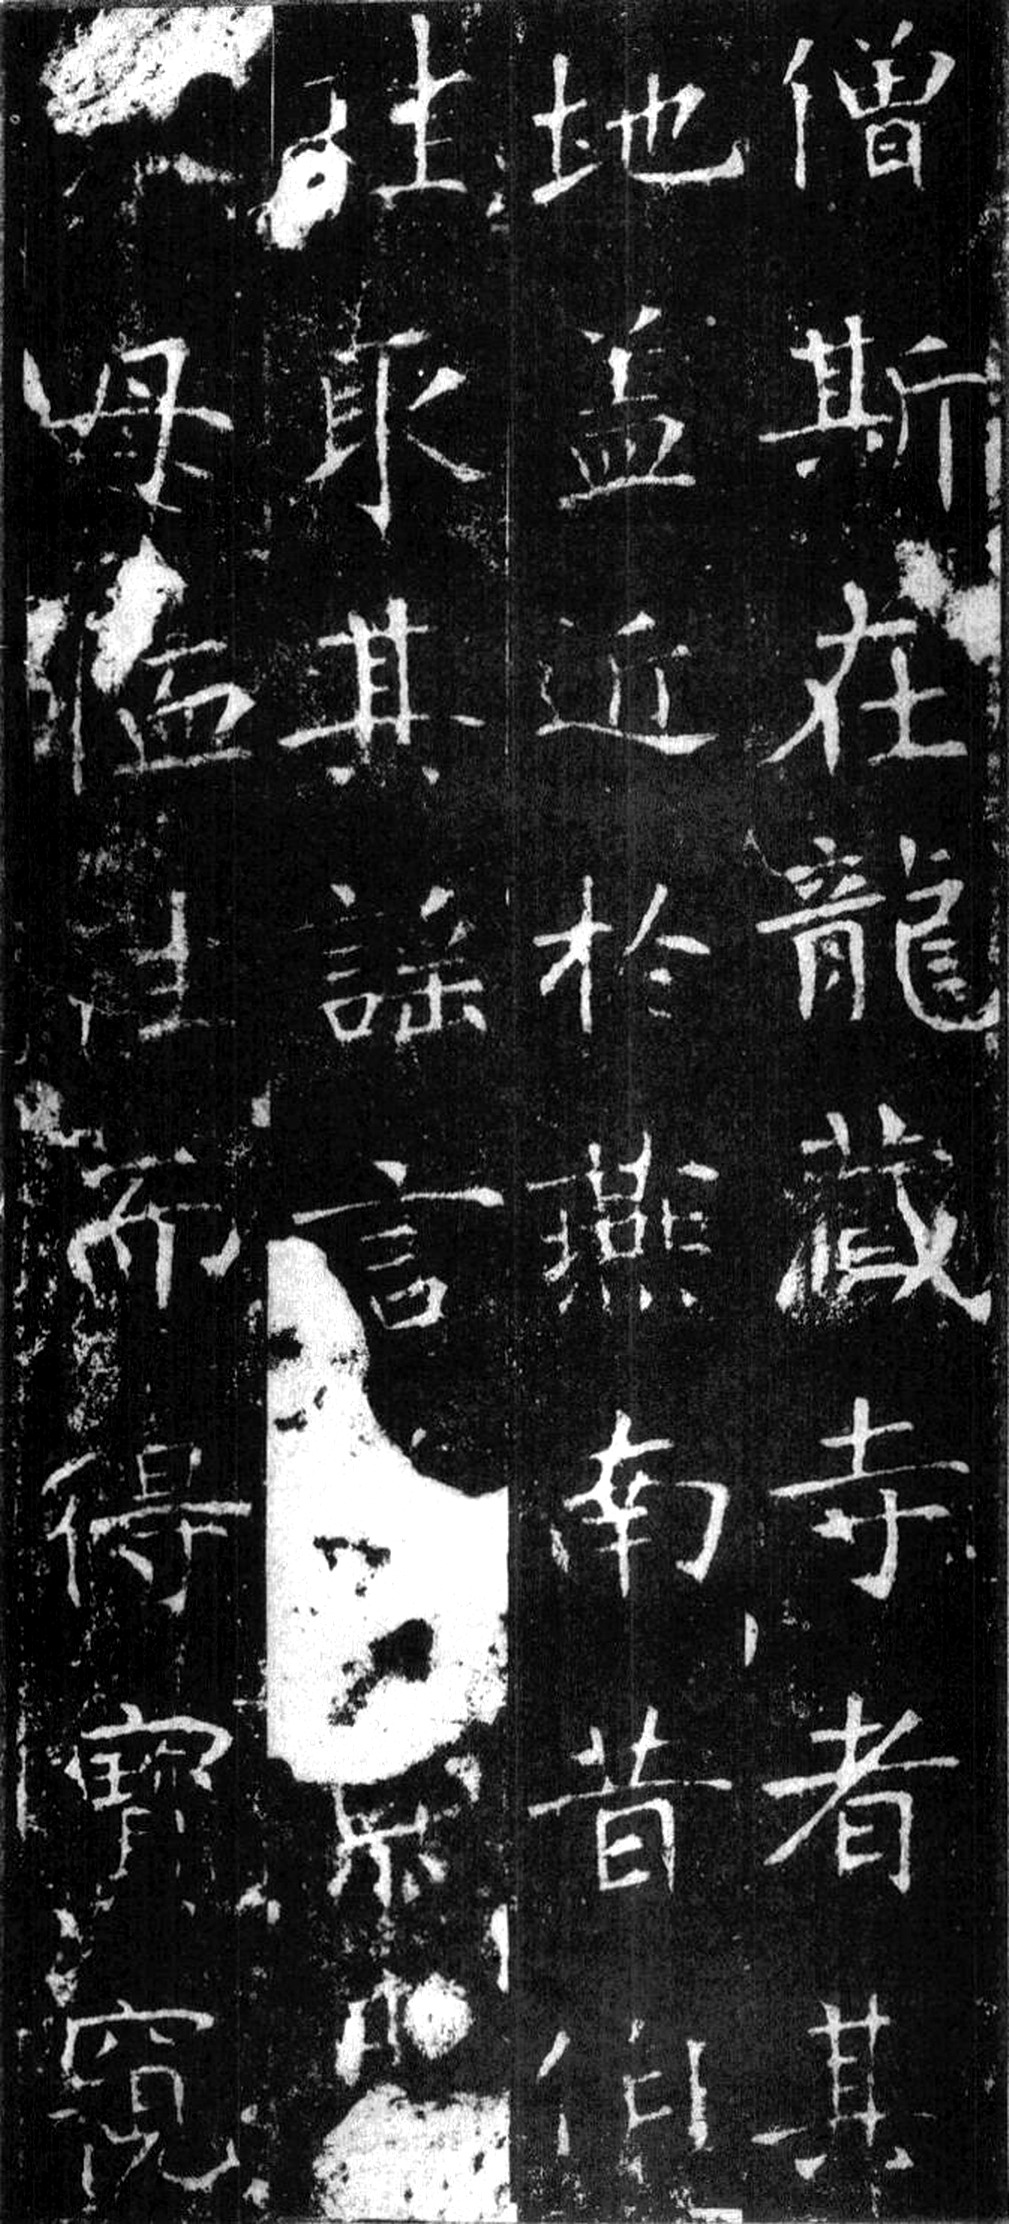 僧斯在龍藏寺者其
地蓋近於燕南昔伯
珪取其謠言
毋卹往而得寶寬